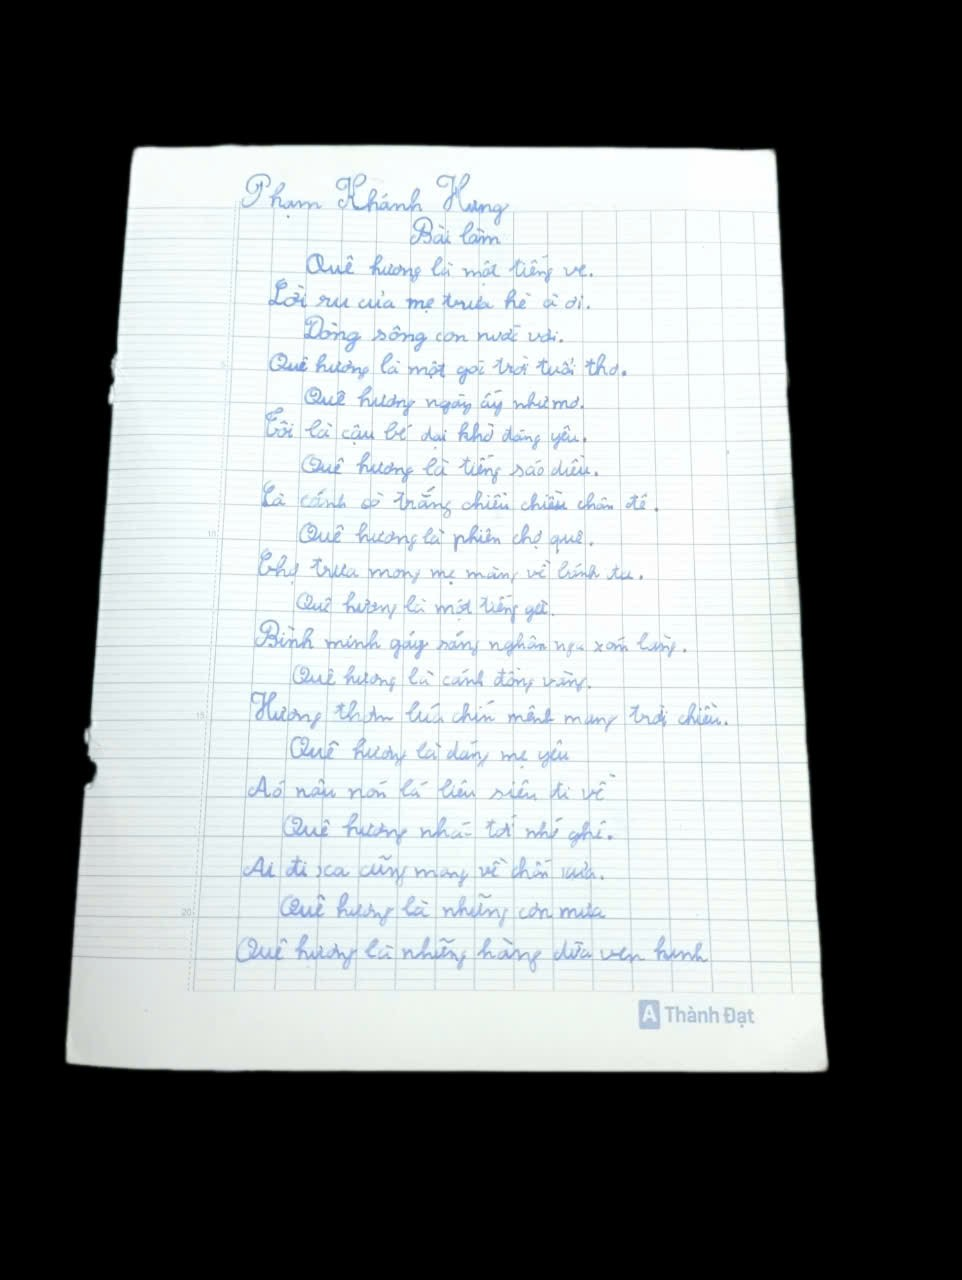 Phạm Khánh Hưng
Bài làm
Quê hương là một tiếng ve.
Lời ru của mẹ trưa hè à ơi.
Dòng sông con nước vơi.
Quê hương là một góc trời tuổi thơ.
Quê hương ngày ấy như mơ.
Tôi là cậu bé dại khờ đáng yêu.
Quê hương là tiếng sáo diều.
Là cánh cò trắng chiều chiều chân đê.
Quê hương là phiên chợ quê.
Chợ trưa mong mẹ mang về bánh đa.
Quê hương là một tiếng gà.
Bình minh gáy sáng ngân nga xóm làng.
Quê hương là cánh đồng vàng.
Hương thơm lúa chín mênh mang trời chiều.
Quê hương là dáng mẹ yêu
Áo nâu nón lá liêu siêu đi về
Quê hương nhớ
Ai đi xa cũng mang về chốn xưa.
Quê hương là những cơn mưa
Quê hương là những hàng dừa ven kinh
15
20
A Thành Đạt